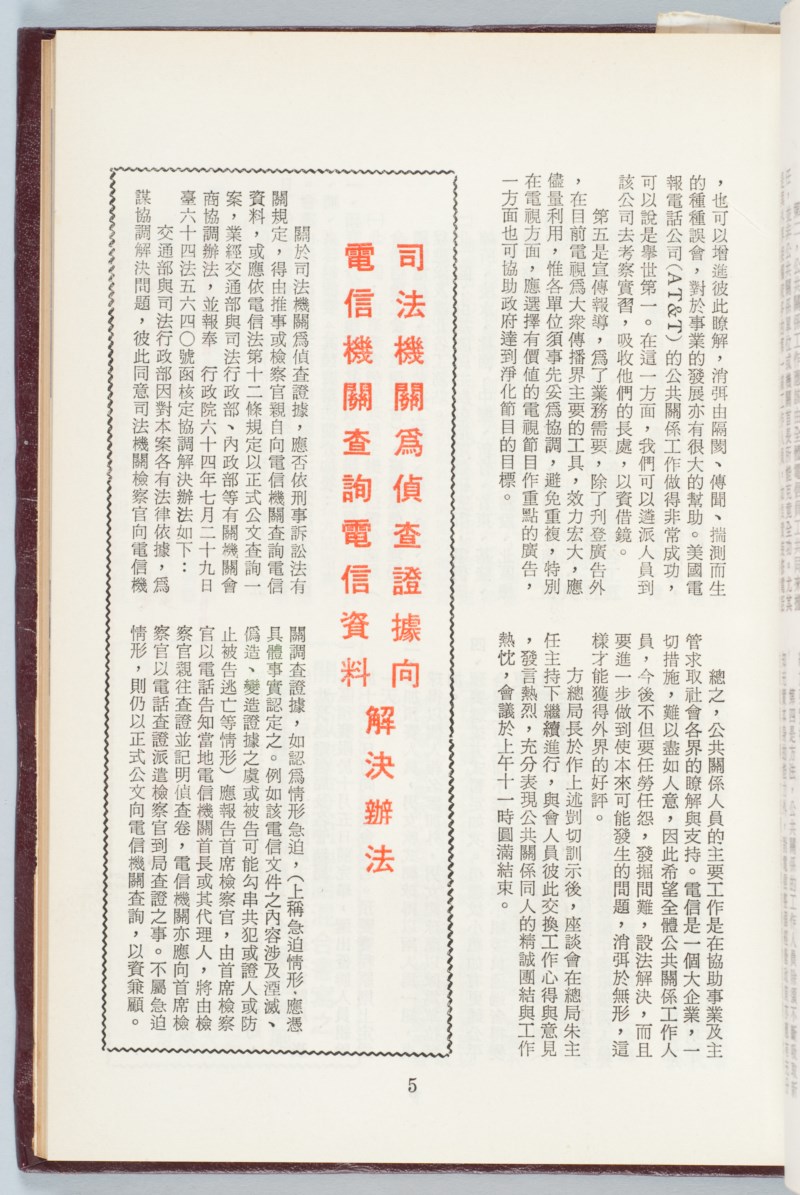 ，也可以增進彼此瞭解，消弭由隔閡、傳聞、揣測而生
的種種誤會，對於事業的發展亦有很大的幫助。美國電
報電話公司（AT&T）的公共關係工作做得非常成功，
可以說是舉世第一。在這一方面，我們可以遴派人員到
該公司去考察實習，吸收他們的長處，以資借鏡。
第五是宣傳報導，爲了業務需要，除了刋登廣告外
，在目前電視爲大衆傳播界主要的工具，效力宏大，應
儘量利用，惟各單位須事先妥爲協調，避免重複，特別
在電視方面，應選擇有價值的電視節目作重點的廣告，
一方面也可協助政府達到淨化節目的目標。
總之，公共關係人員的主要工作是在協助事業及主
管求取社會各界的瞭解與支持。電信是一個大企業，一
切措施，難以盡如人意，因此希望全體公共關係工作人
員，今後不但要任勞任怨，發掘問難，設法解決，而且
要進一步做到使本來可能發生的問題，消弭於無形，這
樣才能獲得外界的好評。
方總局長於作上述剴切訓示後，座談會在總局朱主
任主持下繼續進行，與會人員彼此交換工作心得與意見
，發言熱烈，充分表現公共關係同人的精誠團結與工作
熱忱，會議於上午十一時圓滿結束。
司法機關爲偵查證據向
電信機關查詢電信資料
解決辦法
關於司法機關爲偵查證據，應否依刑事訴訟法有
關規定，得由推事或檢察官親自向電信機關查詢電信
資料，或應依電信法第十二條規定以正式公文查詢一
案，業經交通部與司法行政部、內政部等有關機關會
商協調辦法，並報奉　行政院六十四年七月二十九日
臺六十四法五六四〇號函核定協調解決辦法如下：
交通部與司法行政部因對本案各有法律依據，爲
謀協調解決問題，彼此同意司法機關檢察官向電信機
關調查證據，如認爲情形急迫，（上稱急迫情形，應憑
具體事實認定之。例如該電信文件之內容涉及湮滅、
僞造、變造證據之虞或被告可能勾串共犯或證人或防
止被告逃亡等情形）應報告首席檢察官，由首席檢察
官以電話告知當地電信機關首長或其代理人，將由檢
察官親往查證並記明偵查卷，電信機關亦應向首席檢
察官以電話查證派遣檢察官到局查證之事。不屬急迫
情形，則仍以正式公文向電信機關查詢，以資兼顧。
5